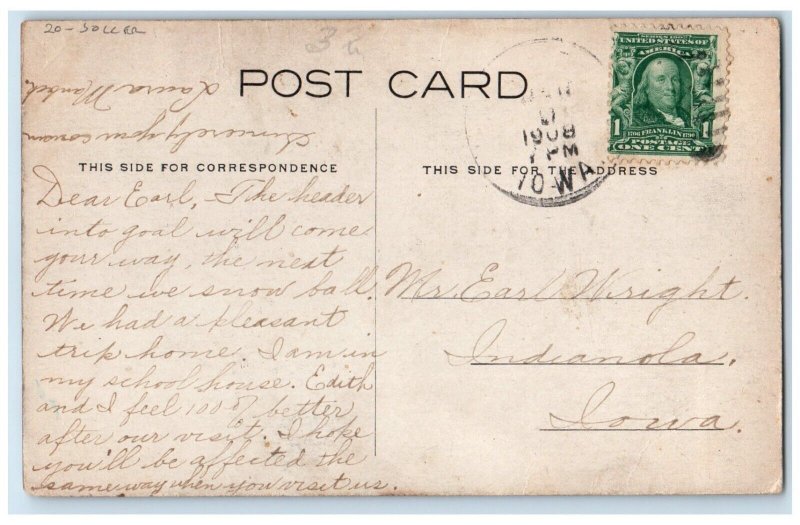 20 - SOCCER
POST CARD
THIS SIDE FOR CORRESPONDENCE
THIS SIDE FOR THE ADDRESS
SERIES 1902
UNITED STATES OF
AMERICA
1706 FRANKLIN 1790
1 POSTAGE 1
ONE CENT
1908
7 PM
IOWA
Dear Earl, - The header
into goal will come
your way, the next
time we snow ball.
We had a pleasant
trip home. I am in
my school house. Edith
and I feel 100 % better
after our visit. I hope
you'll be affected the
same way when you visit us.
Sincerely your
Laura
Mr. Earl Wright.
Indianola,
Iowa.